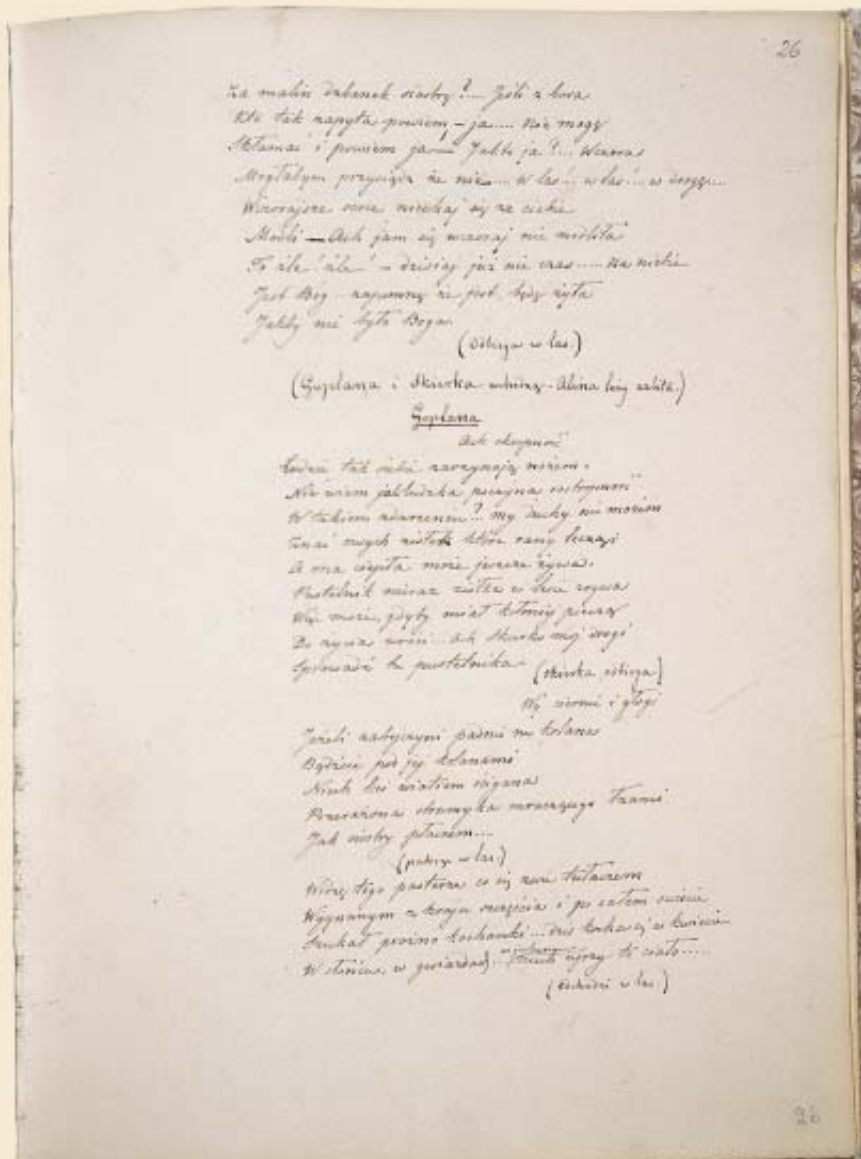 26
Za malin dzbanek siostrę?.... Jeśli z bora
Kto tak zapyta powiem, – ja.... Nie mogę
Skłamać i powiem ja – Jak to ja?... Wczora
Mogłabym przysiądz że nie.... w las!.. w las!.. w drogę....
Wczorajsze serce niechaj się za ciebie
Modli — Ach jam się wczoraj nie modliła
To źle! źle! – dzisiaj już nie czas..... Na niebie
Jest Bóg... zapomnę że jest, będę żyła
Jakby nie było Boga.
(Odbiega w las.)
(Goplana i Skierka wchodzą – Alina leży zabita.)
Goplana
Ach okropność
Ludzie tak siebie zarzynają nożem.
Nie wiem jak ludzka poczyna roztropność
W takiem zdarzeniu? my duchy nie możem
Znać owych ziołek które rany leczą
A ona ciepła może jeszcze żywa.
Pustelnik nieraz ziółka w lesie zrywa
Więc może, gdyby miał o niej pieczę
Do życia wróci... ach Skierko mój drogi
Sprowadź tu pustelnika – (Skierka odbiega)
Wy ciernie i głogi
Jeżeli zabójczyni padnie na kolana
Bądźcie pod jej kolanami
Niech liści wiatrem ścigana
Przerażona strumyka mruczącego łzami
Jak siostry płaczem...
(patrzy w las.)
Widzę tego pasterza co się zowie tułaczem
Wygnanym z kraju szczęścia i po całem świecie
Szukał próżno kochanki... dziś kocha się w kwiecie
W słońcu, w gwiazdach... niech ujrzy to ciało.....
(odchodzi w las.)
26